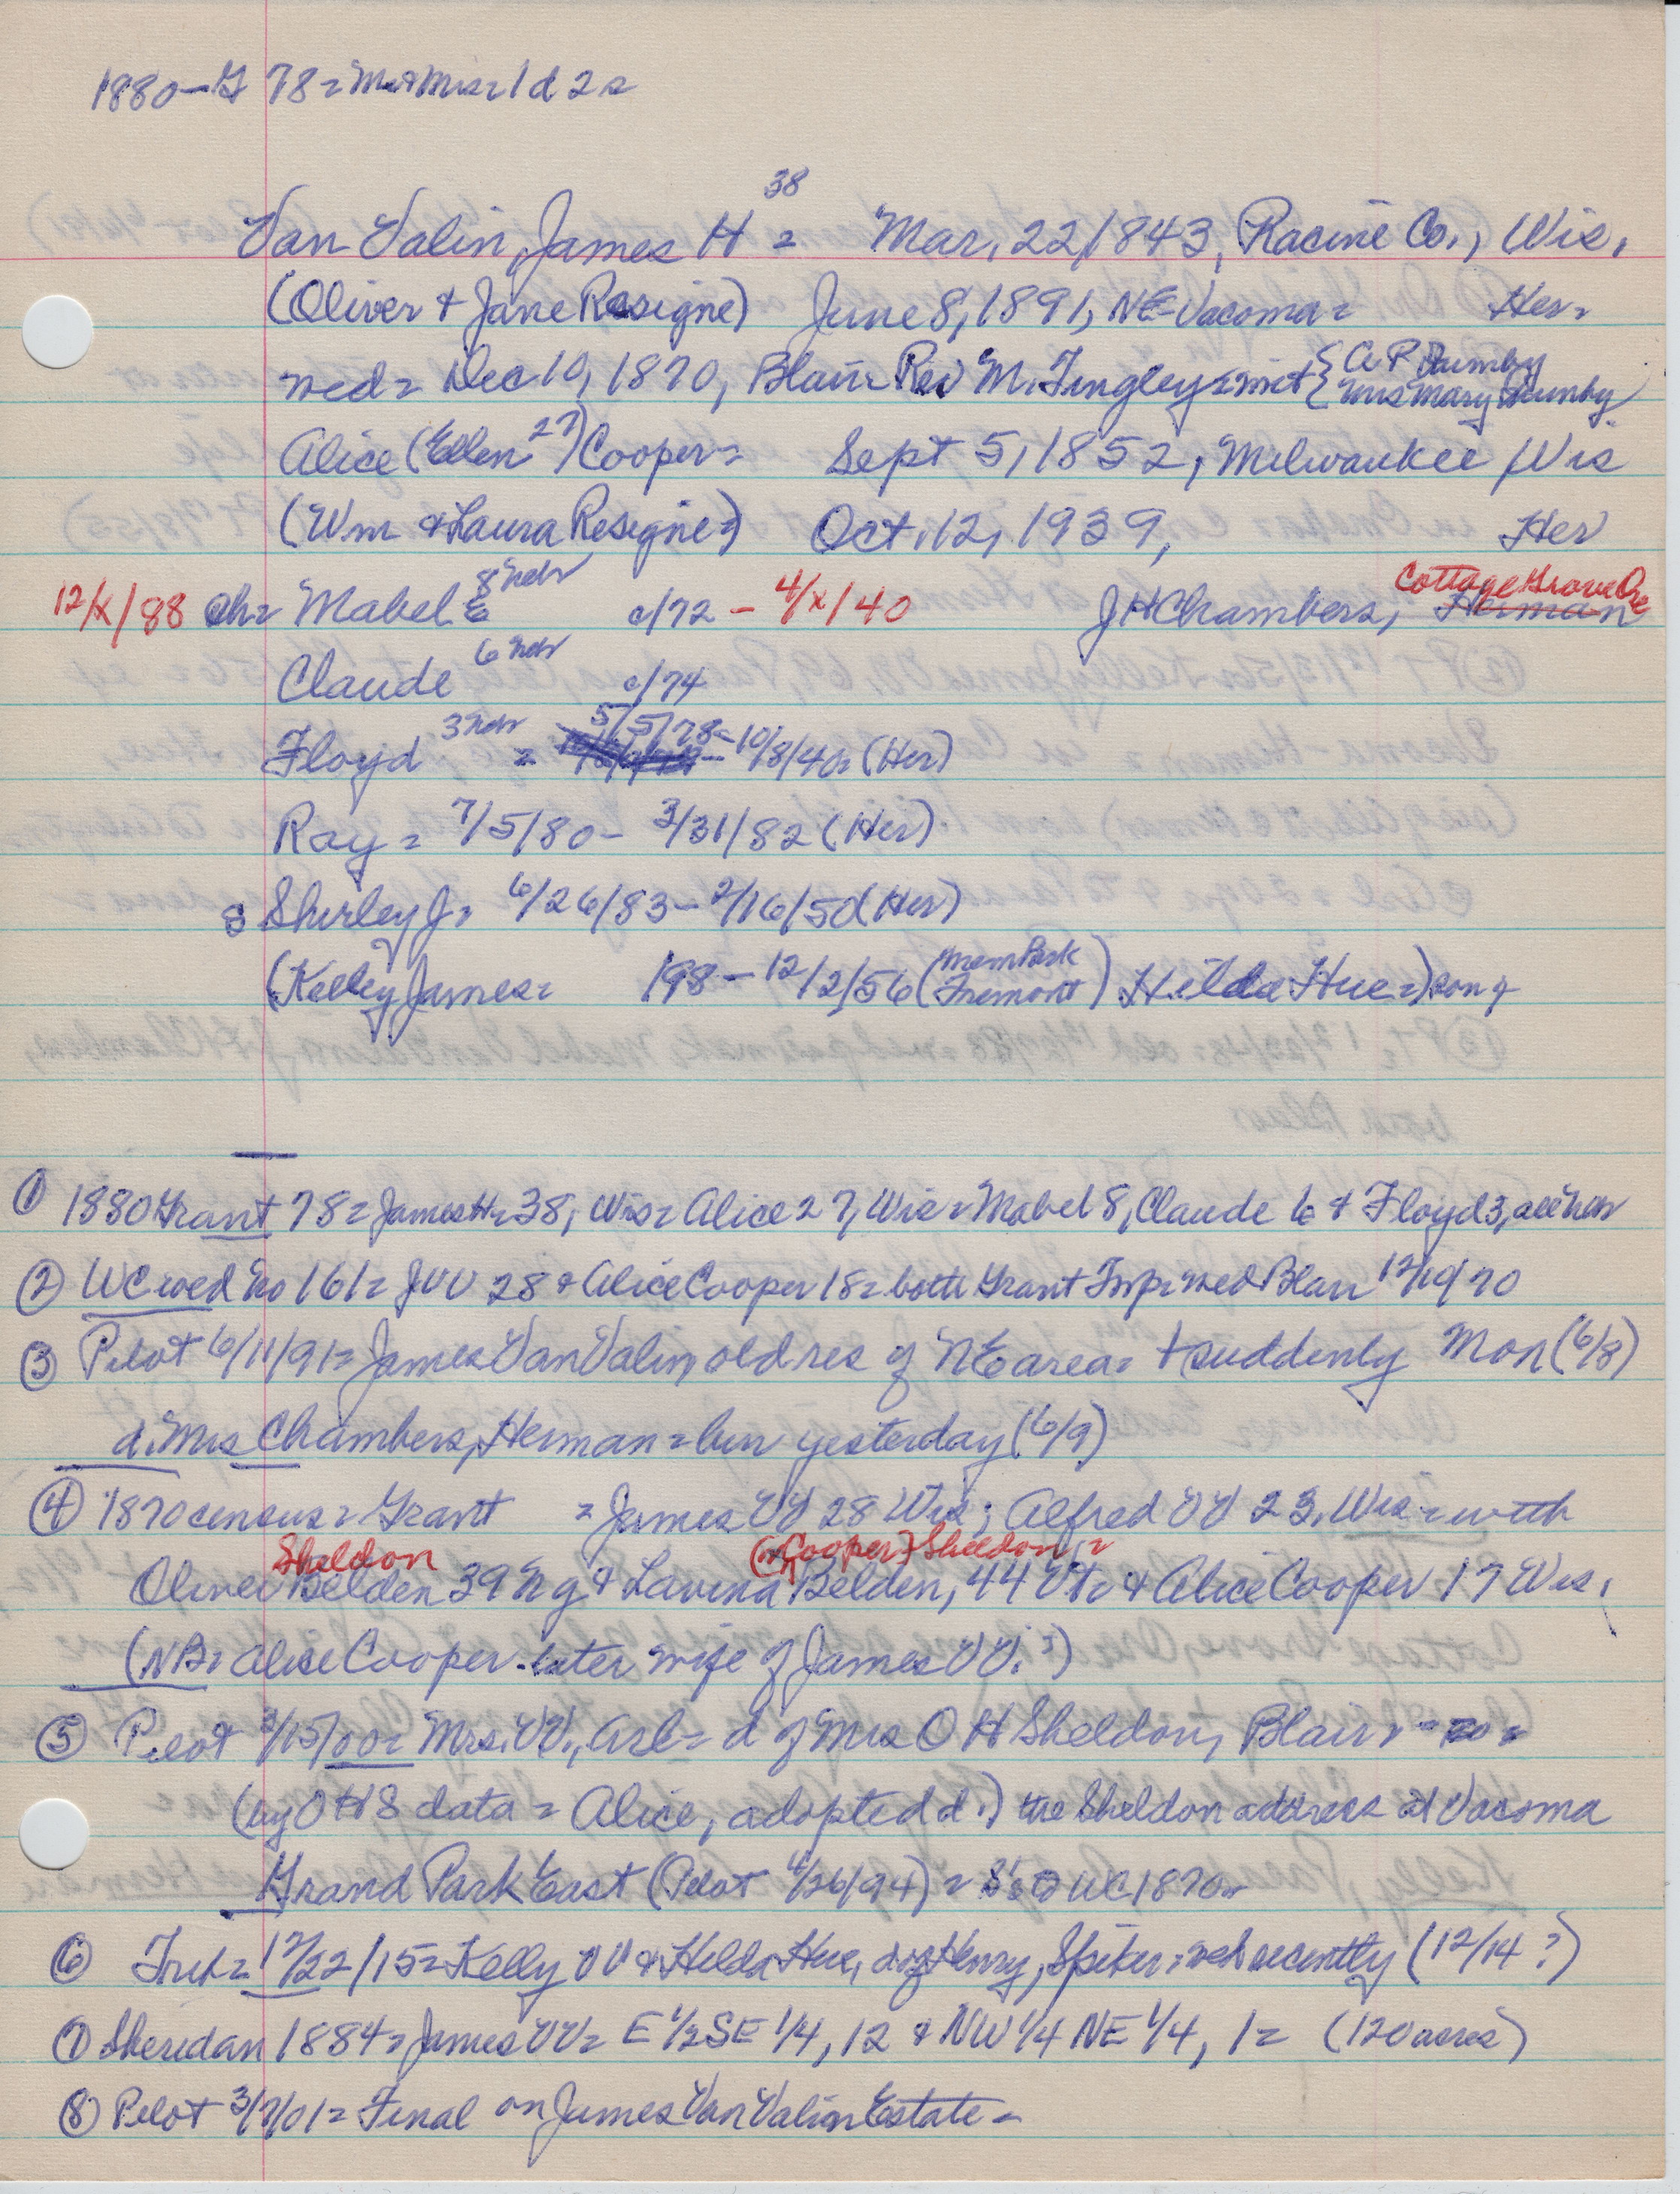 1880-G 78 = Mr & Mrs = 1 d 2 s
38
Van Valin, James H = Mar, 22, 1843, Racine Co., Wis.
(Oliver & Jane Resigne) June 8, 1891, NE Vacoma = Her =
wed = Dec 10, 1870, Blair = Rev M. Tingley = wit { A P
Mrs Mary
Alice (Ellen 27) Cooper = Sept 5, 1852, Milwaukee Wis
(Wm & Laura Resigne =) Oct. 12, 1939, Her
12/x/88 ch = Mabel E 8 Nebr c/72 - 4/x/40 J H Chambers, Herman Cottage Grove Ore
Claude 6 Nebr c/74
Floyd 3 Nebr = 5/5/78 - 10/8/40 = (Her)
Ray = 7/5/80 - 3/31/82 (Her)
8 Shirley J = 6/26/83 - 2/16/50 (Her)
(Kelley James = 198 - 12/2/56 (Mem Park Fremont) Hilda Hue =) son of
① 1880 Grant 78 = James H = 38, Wis = Alice 27, Wis = Mabel 8, Claude 6 & Floyd 3, all Nebr
② WC wed No 161 = JVV 28 & Alice Cooper 18 = both Grant Twp = wed Blair 12/10/70
③ Pilot 6/11/91 = James Van Valin, old res of NE area = + suddenly Mon (6/8)
d. Mrs Chambers, Herman = bur yesterday (6/9)
④ 1870 census = Grant = James VV 28 Wis; Alfred VV 23, Wis = with
Sheldon (Cooper) Sheldon =
Oliver Belden 39 NY & Lavina Belden, 44 Vt = & Alice Cooper 17 Wis.
(NB = Alice Cooper later wife of James VV. ?)
⑤ Pilot 3/15/00 = Mrs. VV., Arl = d of Mrs O H Sheldon, Blair =
(by OHS data = Alice, adopted d.) the Sheldon address at Vacoma
Grand Park East (Pilot 4/26/94) = S's to WC 1870 =
⑥ Trib = 12/22/15 = Kelly VV & Hilda Hue, d of Henry, Spiker = wed recently (12/14 ?)
⑦ Sheridan 1884 = James VV = E 1/2 SE 1/4, 12 & NW 1/4 NE 1/4, 1 = (120 acres)
⑧ Pilot 3/7/01 = Final on James Van Valin Estate =